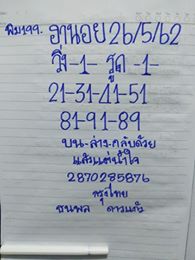 พิม199. ฮานอย 26/5/62
วิ่ง -1- รูด -1-
21-31-41-51
81-91-89
บน-ล่าง-กลับด้วย
แล้วแต่น้ำใจ
2870285876
กรุงไทย
ธนพล ดาวแก้ว